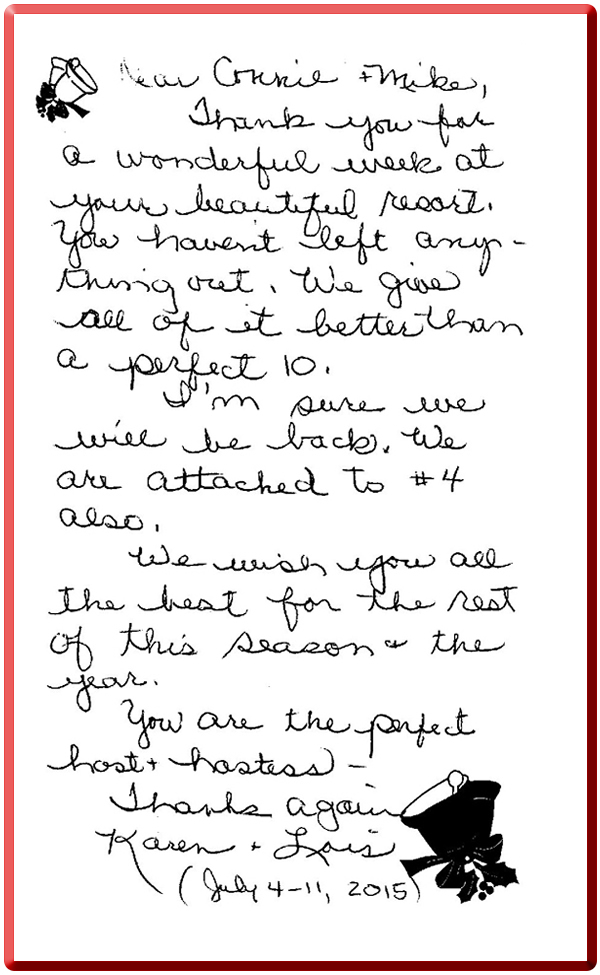 Dear Connie + Mike,
Thank you for
a wonderful week at
your beautiful resort.
You haven't left any-
thing out. We give
all of it better than
a perfect 10.
I'm sure we
will be back. We
are attached to #4
also.
We wish you all
the best for the rest
of this season & the
year.
You are the perfect
host + hostess -
Thanks again
Karen + Lois
(July 4-11, 2015)